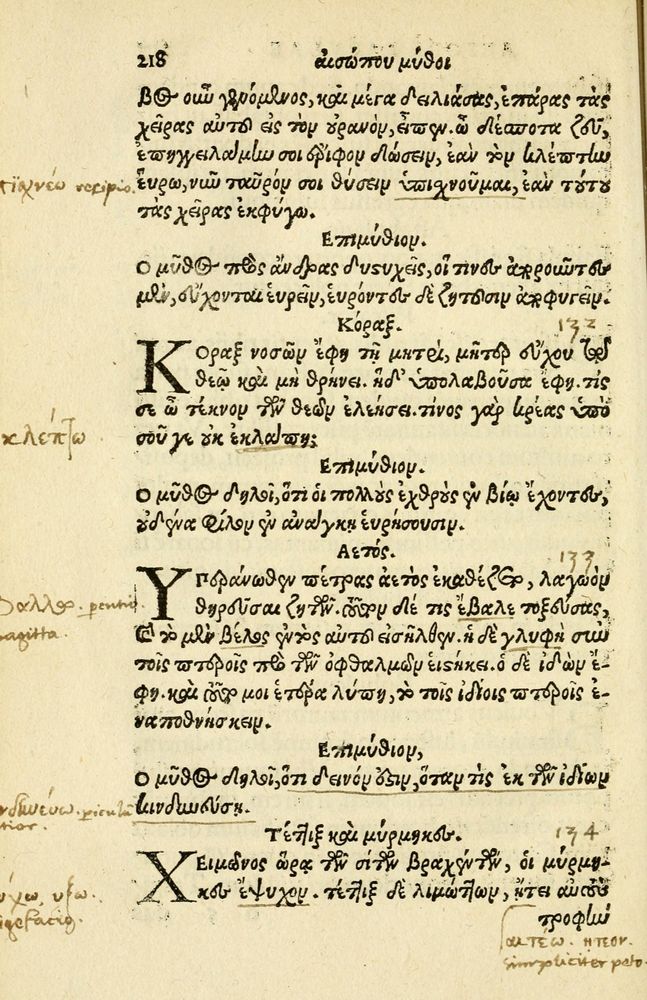 218 αἰσώπου μῦθοι
βος οὖν γενόμενος, καὶ μέγα δειλιάσας, ἐπάρας τὰς
χεῖρας αὐτοῦ εἰς τὸν οὐρανὸν, εἶπεν. ὦ δέσποτα ζεῦ,
ἐπηγγειλάμην σοι ἔριφον δώσειν, ἐὰν τὸν κλέπτην
εὕρω, νῦν ταῦρόν σοι θύσειν ὑπισχνοῦμαι, ἐὰν τούτου
τὰς χεῖρας ἐκφύγω.
Επιμύθιον.
Ο μῦθος πρὸς ἄνδρας δυστυχεῖς, οἵ τινες ἀπροῦντες
μὲν, εὔχονται εὑρεῖν, εὑρόντες δὲ ζητοῦσιν ἀποφυγεῖν.
Κόραξ. 132
Κοραξ νοσῶν ἔφη τῇ μητρὶ, μῆτερ εὔχου τῷ
θεῷ καὶ μὴ θρήνει. ἡ δ' ὑπολαβοῦσα ἔφη. τίς
σε ὦ τέκνον τῶν θεῶν ἐλεήσει. τίνος γὰρ κρέας ὑπὸ
σοῦ γε οὐκ ἐκλάπη;
Επιμύθιον.
Ο μῦθος δηλοῖ, ὅτι οἱ πολλοὺς ἐχθροὺς ἐν βίῳ ἔχοντες,
οὐδένα φίλον ἐν ἀνάγκῃ εὑρήσουσιν.
Αετός. 133
Υπεράνωθεν πέτρας ἀετὸς ἐκαθέζετο, λαγωὸν
θηρεῦσαι ζητῶν. τοῦτον δέ τις ἔβαλε τοξεύσας,
καὶ τὸ μὲν βέλος ἐντὸς αὐτοῦ εἰσῆλθεν. ἡ δὲ γλυφὴ σὺν
τοῖς πτεροῖς πρὸ τῶν ὀφθαλμῶν εἱστήκει. ὁ δὲ ἰδὼν ἔ-
φη. καὶ τοῦτό μοι ἑτέρα λύπη, τὸ τοῖς ἰδίοις πτεροῖς ἐ-
ναποθνήσκειν.
Επιμύθιον,
Ο μῦθος δηλοῖ, ὅτι δεινόν ἐστιν, ὅταν τὶς ἐκ τῶν ἰδίων
κινδυνεύσῃ.
Τέττιξ καὶ μύρμηκες. 134
Χειμῶνος ὥρᾳ τῶν σίτων βραχέντων, οἱ μύρμη-
κες ἔψυχον. τέττιξ δὲ λιμώττων, ᾔτει αὐτοὺς
τροφὴν
recipio.
κλέπτω
sagitta.
αιτέω. ητεον.
simpliciter peto.